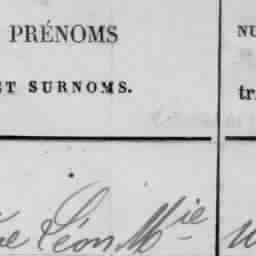 PRÉNOMS
ET SURNOMS.
NU
tr
Léon Mie